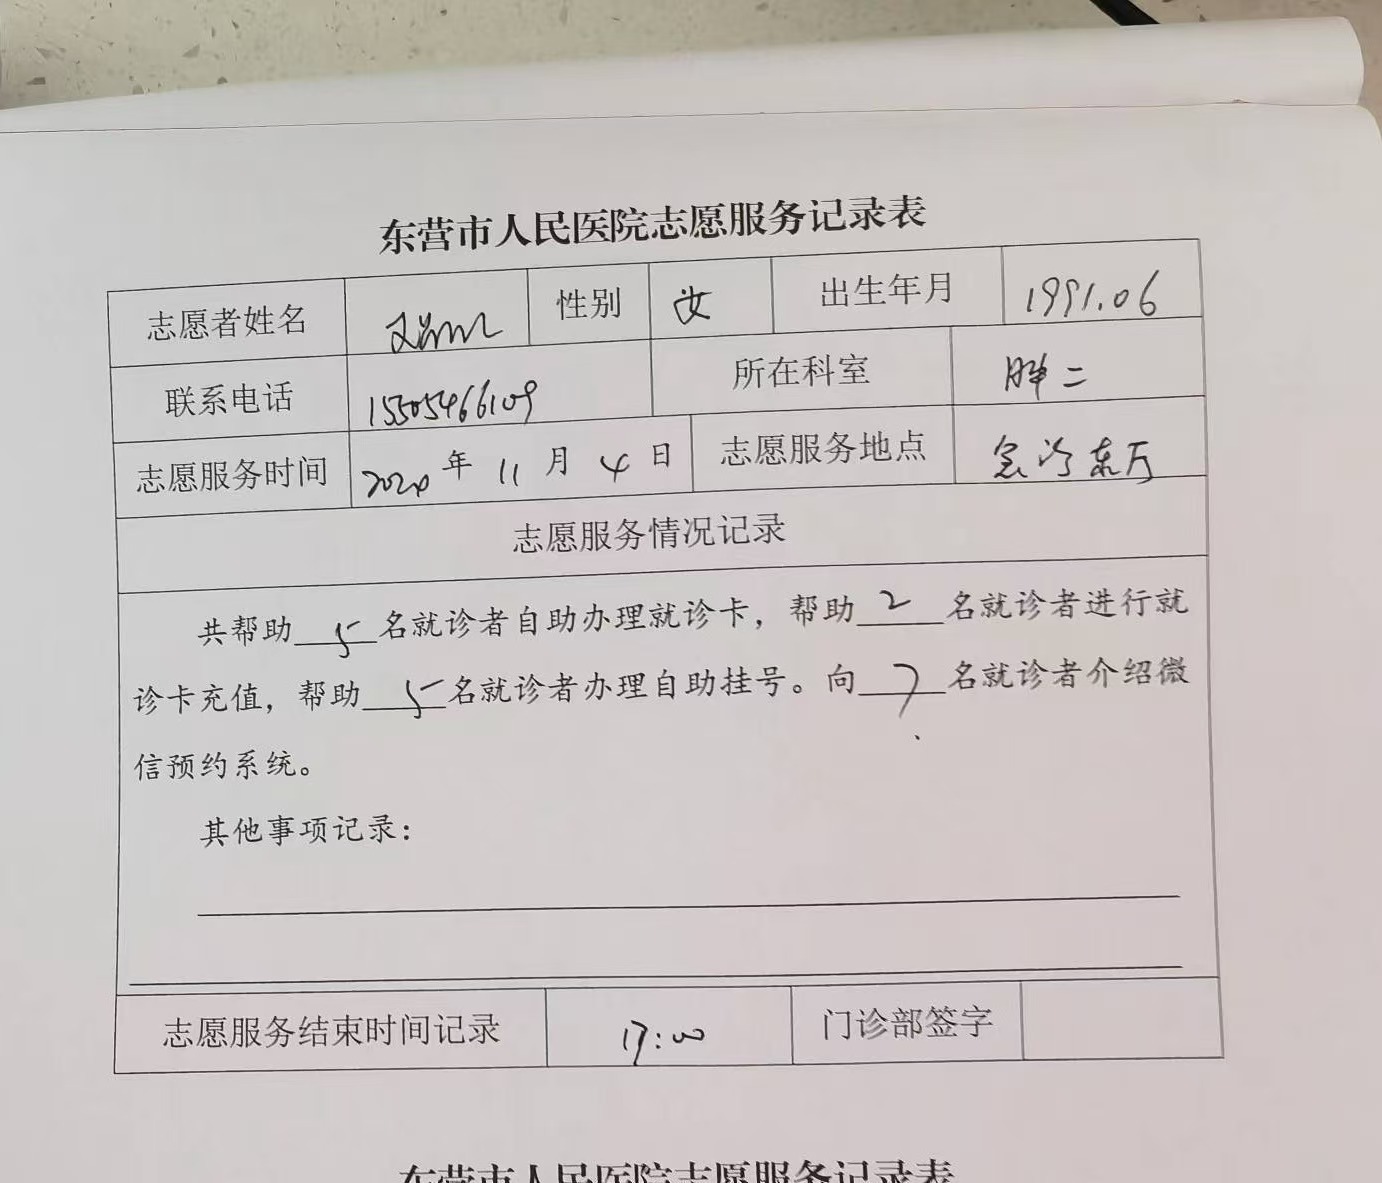 东营市人民医院志愿服务记录表
志愿者姓名 性别 女 出生年月 1991.06
联系电话 15505466109 所在科室 肿二
志愿服务时间 2024年11月4日 志愿服务地点 急诊东厅
志愿服务情况记录
共帮助5名就诊者自助办理就诊卡，帮助2名就诊者进行就
诊卡充值，帮助5名就诊者办理自助挂号。向7名就诊者介绍微
信预约系统。
其他事项记录：
志愿服务结束时间记录 17:00 门诊部签字
东营市人民医院志愿服务记录表